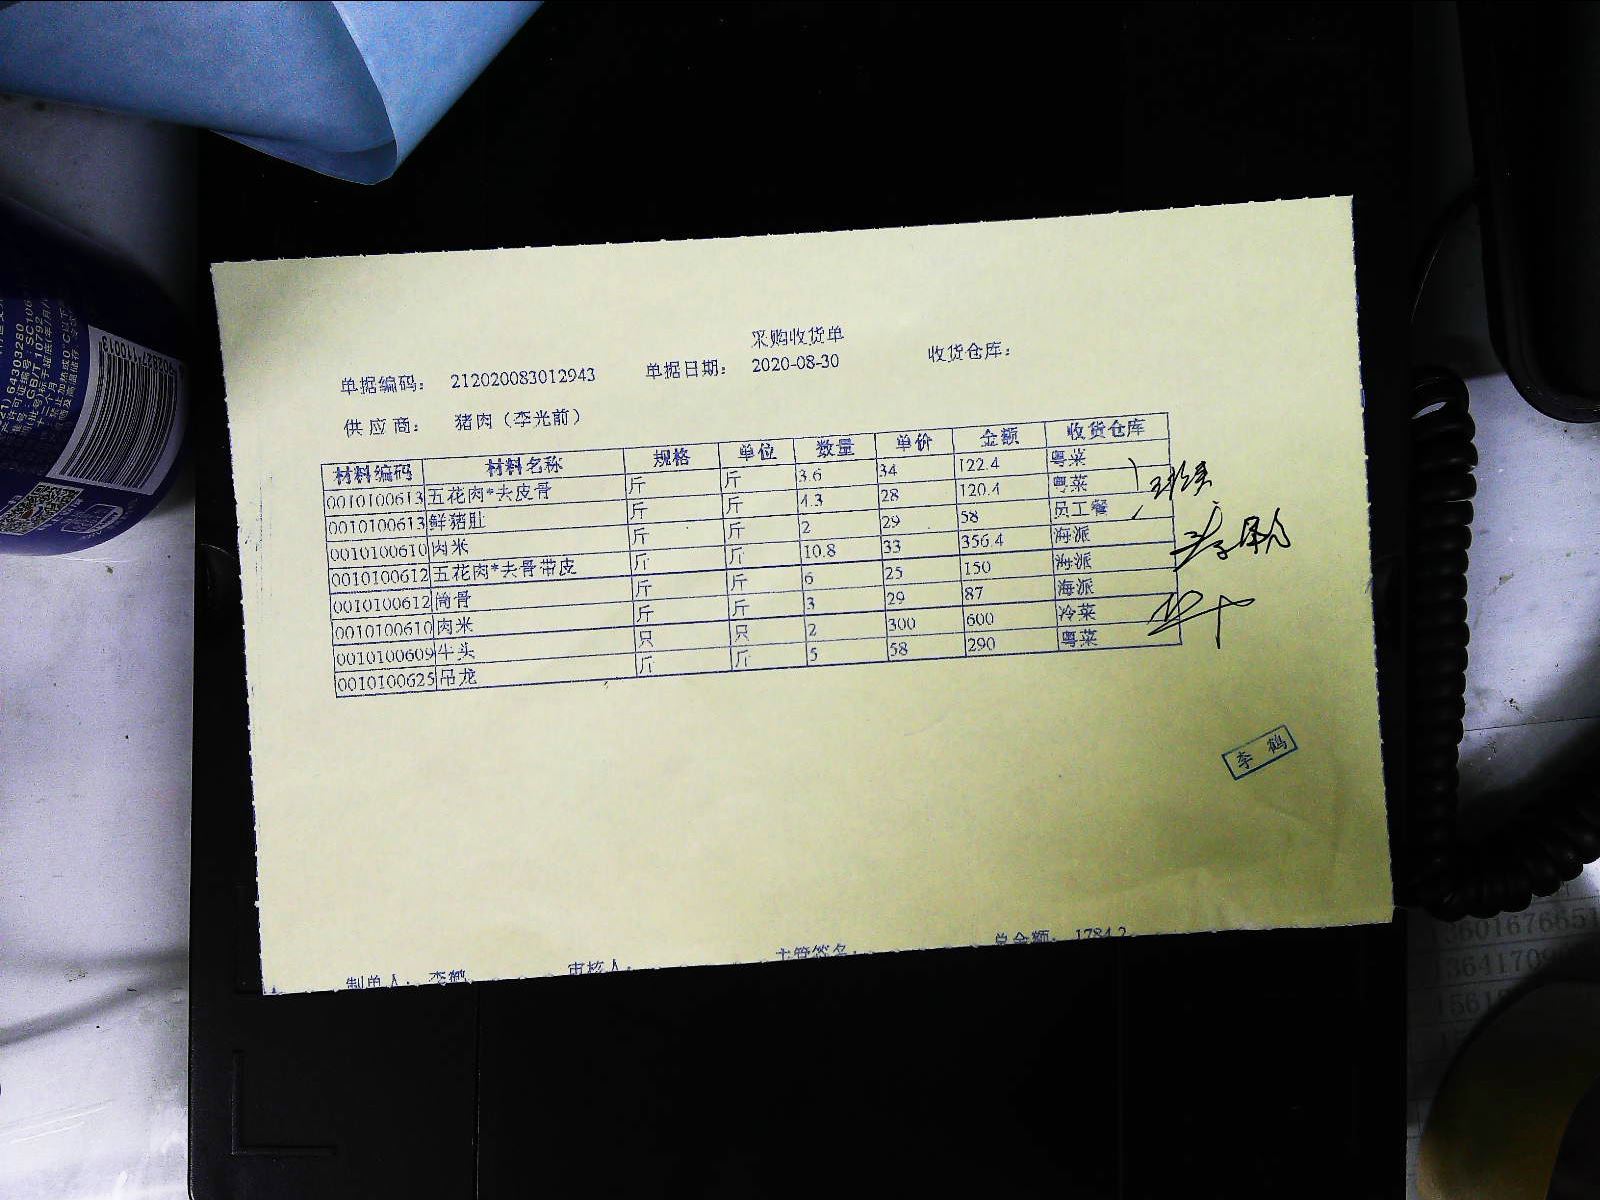 采购收货单
单据编码： 212020083012943 单据日期： 2020-08-30 收货仓库：
供应商： 猪肉（李光前）
材料编码 材料名称 规格 单位 数量 单价 金额 收货仓库
0010100613 五花肉*去皮骨 斤 斤 3.6 34 122.4 粤菜
0010100613 鲜猪肚 斤 斤 4.3 28 120.4 粤菜
0010100610 肉米 斤 斤 2 29 58 员工餐
0010100612 五花肉*去骨带皮 斤 斤 10.8 33 356.4 海派
0010100612 筒骨 斤 斤 6 25 150 海派
0010100610 肉米 斤 斤 3 29 87 海派
0010100609 牛头 只 只 2 300 600 冷菜
0010100625 吊龙 斤 斤 5 58 290 粤菜
李鹤
制单人： 李鹤 审核人： 主管签名： 总金额： 1784.2
64303280
GB/T 10792